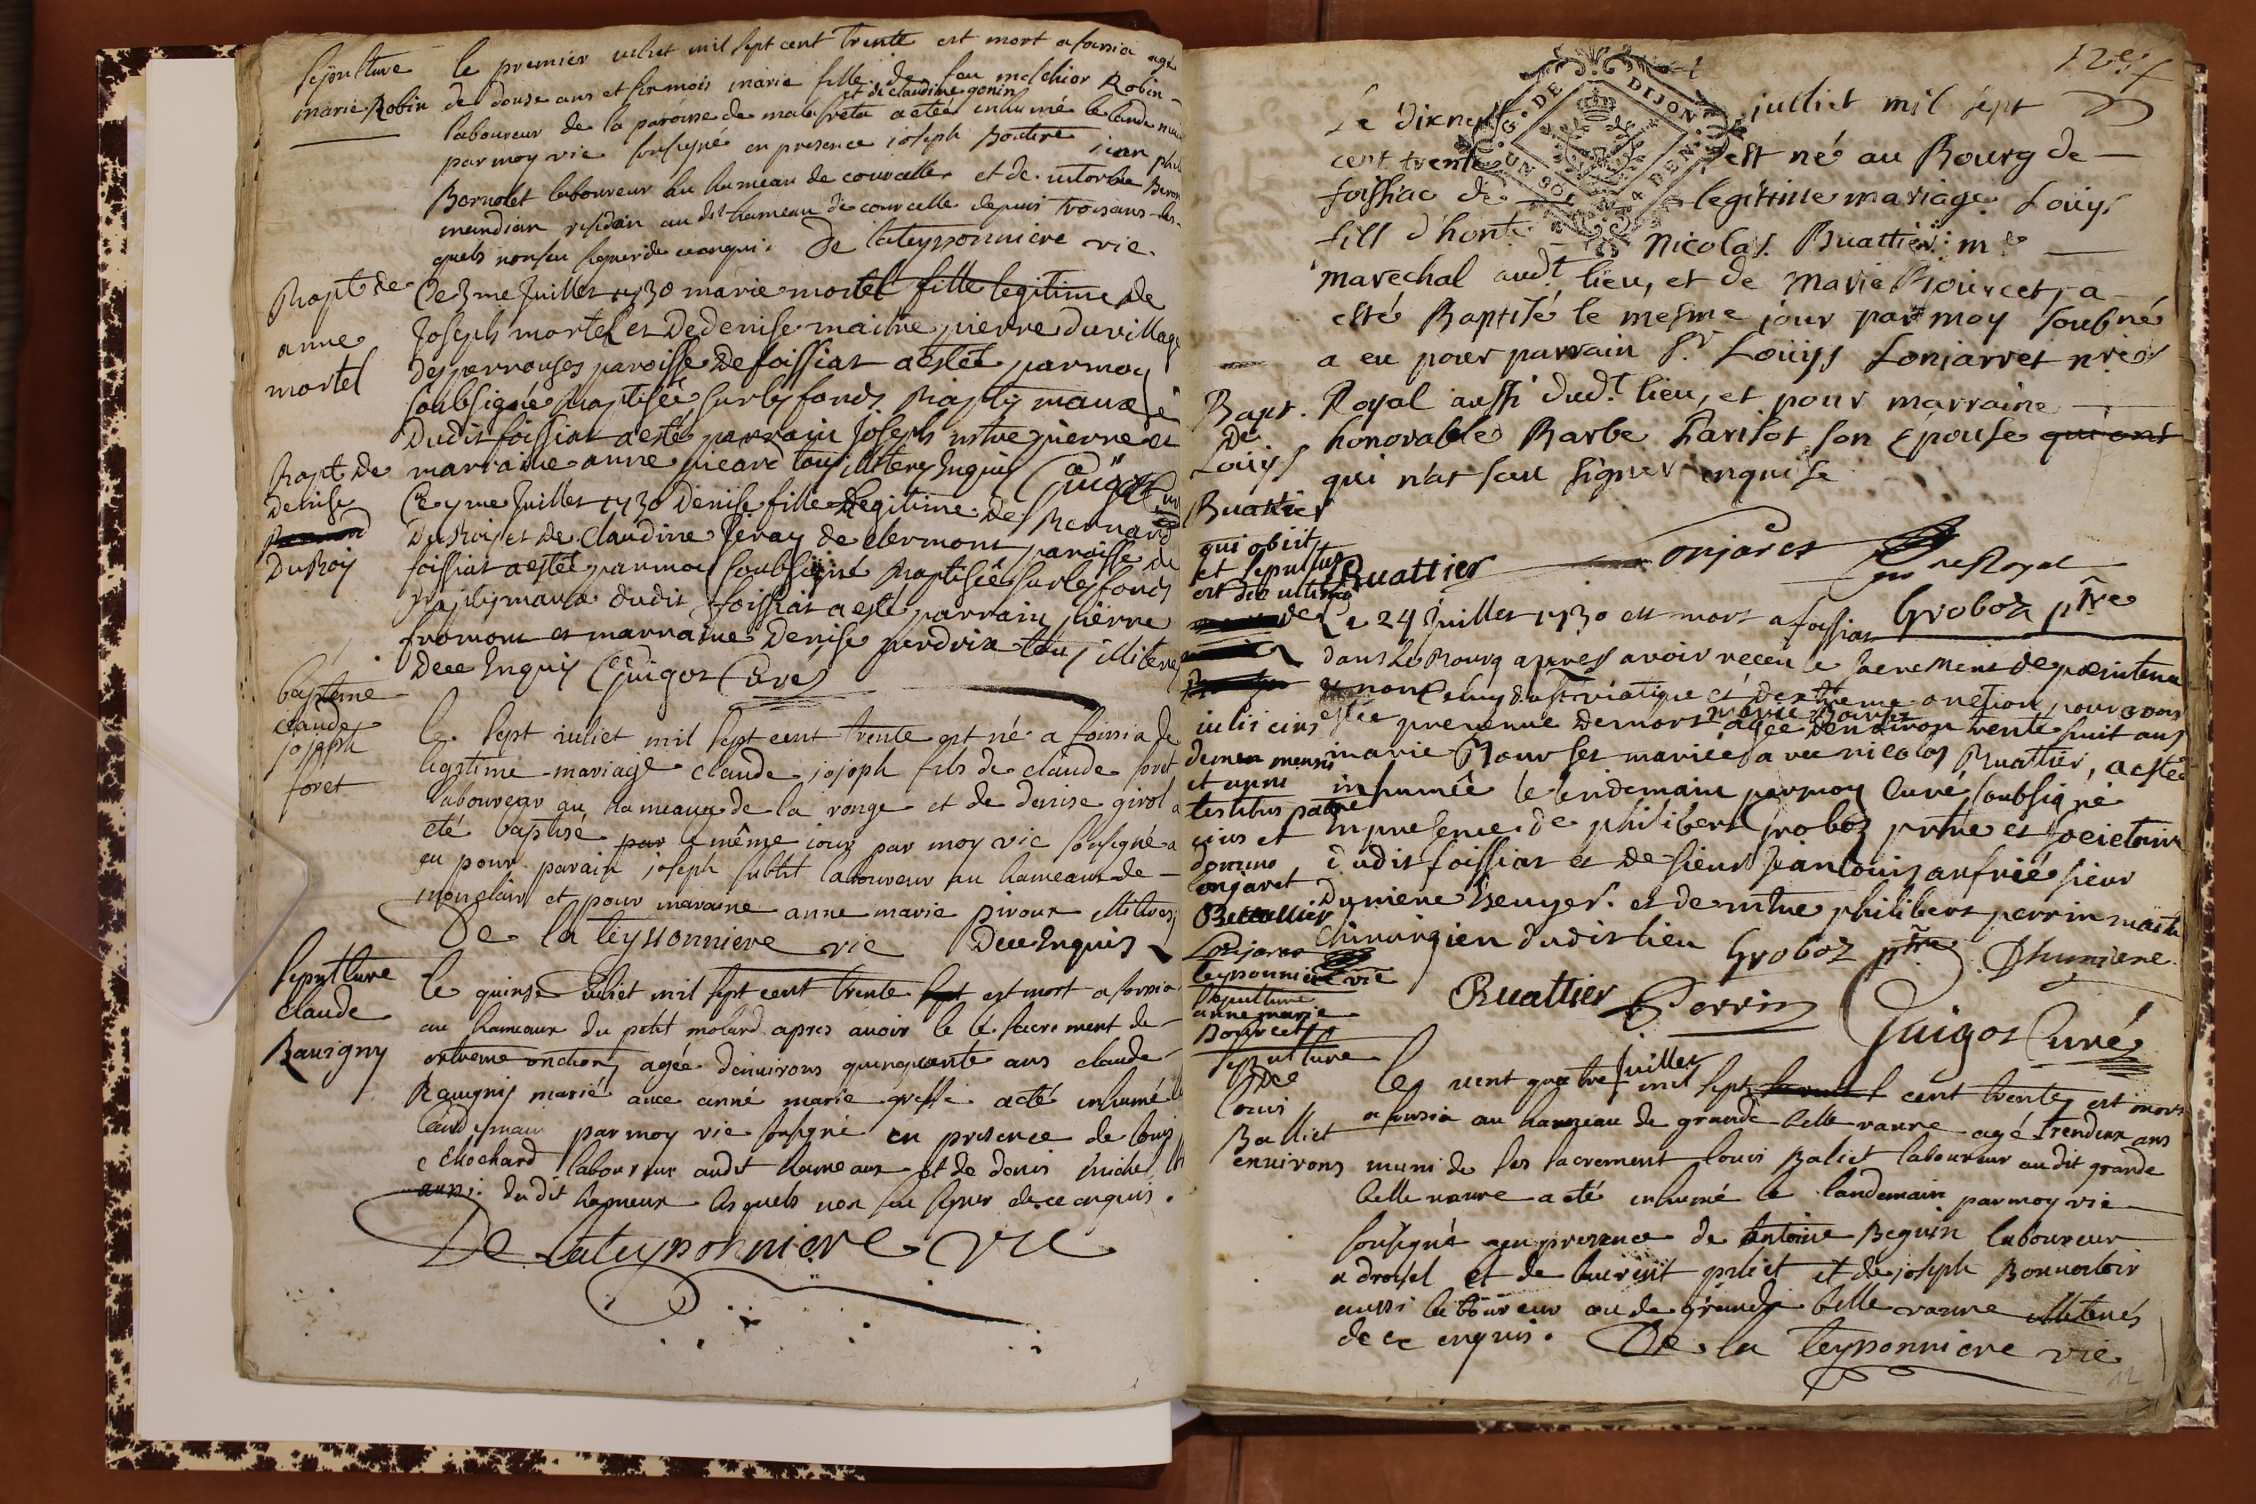 sepulture
marie Robin
le premier juliet mil sept cent trente est mort a foissia agé
de douse ans et six mois marie fille de feu melchior Robin
et de claudine gonin
laboureur de la paroisse de malafreta a etée inhumé le landemain
par moy vic sousigné en presence joseph Bouture jean
Bornolet laboureur au hameau de courcelle et de
mendian residan au dit hameau de courcelle depuis trois ans les-
quels nonsu signer de ce anquis. De lateyssonniere vic.
Bapt de
anne
mortel
Ce 3me Juillet 1730 marie mortel fille legitime de
Joseph mortel et de denise maitre pierre du village
des perrouses paroisse de foissiat a estée par moy
soubsigné baptisée sur les fonds baptismaux
dudit foissiat a esté parrain Joseph pierre et
marraine anne picard tous illiterés enquis Guigot Curé
Bapt de
denise
DuRoy
Ce 7me Juillet 1730 denise fille legitime de Bernard
DuRoy et de Claudine feray de clermont paroisse de
foissiat a estée par moy soubsigné Baptisée sur les fonds
baptismaux dudit foissiat a esté parrain pierre
fromont et marraine denise perdrix tous illiterés
de ce Enquis Guigot Curé
bapteme
claude
joseph
foret
le sept juliet mil sept cent trente est né a foissia de
legitime mariage claude joseph fils de claude foret
laboureur au hameaux de la ronge et de denise girol a
eté baptisé par le même jour par moy vic sousigné a
eu pour parain joseph subtil laboureur au hameaux de
monclair et pour maraine anne marie piroux illiterés
De la teyssonniere vic De ce Enquis
sepulture
claude
Ravigny
le quinse juliet mil sept cent trente est mort a foissia
au hameaux du petit molard apres avoir le sacrement de
extreme onction agée d'environs quinquante ans claude
Ravigny marié avec anne marie greffe a eté inhumé le
landemain par moy vic sousigné en presence de louis
chochard laboureur audit hameaux et de denis michel
aussi du dit hameux les quels non su signer de ce enquis.
De lateyssonniere vic
12e
G. DE DIJON
UN SOL 4 DEN.
Le dixneuf juilliet mil sept
cent trente est né au Bourg de
foissiac de legitime mariage Loüys
fils d'hon. Nicolas Buattier me
marechal audt lieu, et de Marie Bourcet, a
esté Baptisé le mesme jour par moy soubné
a eu pour parrain Sr Loüys Lonjarret nre
Royal aussi dudt lieu, et pour marraine
honorable Barbe Parisot son Epouse qui ont
qui n'at sceu signer enquise
Bapt.
de
Loüys
Buattier
qui obiit
et sepultus
est die ultima
julii eius
demen mensis
et anni
testibus patre
eius et
domino
lonjaret
Buattier
Lonjaret
teyssonniere vic
Buattier Lonjaret nre Royal
Groboz ptre
Ce 24 Juillet 1730 est mort a foissiat
dans le Bourg apres avoir receu le sacrement de penitence
et non celuy du st viatique et d'extreme onction pour avoir
estée prevenue de mort marie Bourset agée denviron trente huit ans
marie Bourset mariée avec nicolas Buattier, a estée
inhumée le lendemain par moy Curé soubsigné
En presence de philibert Groboz prtre et societaire
dudit foissiat et de sieur Jean louis aufrié sieur
Dumiene Ecuyer et de mtre philibert perrin maitre
Chirurgien dudit lieu Groboz ptre Dhumiene
Buattier Perrin Guigot Curé
sepulture
anne marie
Bourcet
sepulture
de
louis
Balliet
le vent quatre juillet mil sept cent trente est mort
a foissia au hameau de grande belle vavre agé trendeux ans
environs muni de ses sacrement louis Baliet laboureur audit grande
belle vavre a eté inhumé le landemain par moy vic
sousigné en presence de antoine Beguin laboureur
a et de laurent et de joseph Bonnoboir
aussi laboureur au de grande belle vavre illiterés
de ce enquis. De la teyssonniere vic
12